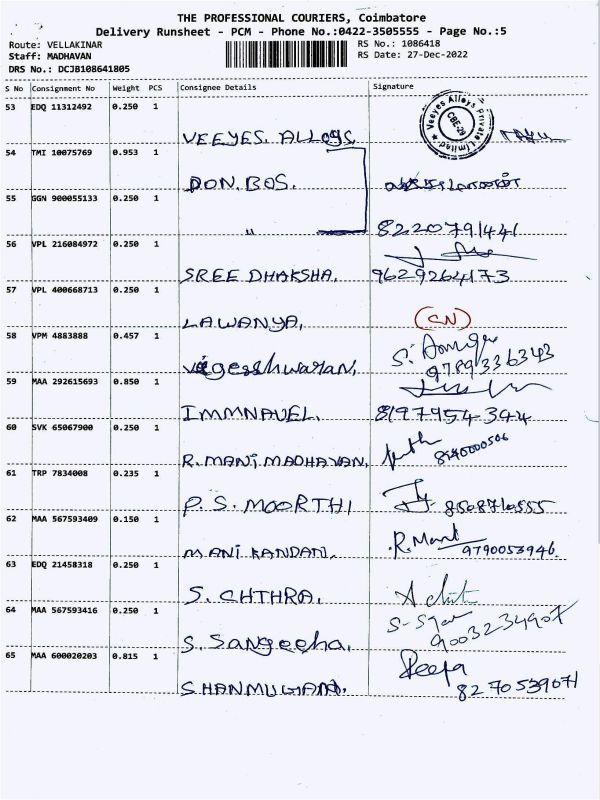 THE PROFESSIONAL COURIERS, Coimbatore
Delivery Runsheet - PCM - Phone No.:0422-3505555 - Page No.:5
Route: VELLAKINAR RS No.: 1086418
Staff: MADHAVAN RS Date: 27-Dec-2022
DRS No.: DCJB108641805
S No Consignment No Weight PCS Consignee Details Signature
53 EDQ 11312492 0.250 1
VEEYES. ALLOYS, Veeyes Alloys Private Limited. CBE-29
54 TMI 10075769 0.953 1
DON. BOS.
55 GGN 900055133 0.250 1
" 8220791441
56 VPL 216084972 0.250 1
SREE DHAKSHA. 9629264173
57 VPL 400668713 0.250 1
LAWANYA, (CN)
58 VPM 4883888 0.457 1
Vigesshwaran, 9789336343
59 MAA 292615693 0.850 1
IMMNAVEL. 8197954394
60 SVK 65067900 0.250 1
R. MANI MADHAVAN,
61 TRP 7834008 0.235 1
P. S. MOORTHI
62 MAA 567593409 0.150 1
MANI KANDAN. R. Mani 9790053946.
63 EDQ 21458318 0.250 1
S. CHTHRA.
64 MAA 567593416 0.250 1
S. Sangeeha. 9003234907
65 MAA 600020203 0.815 1
SHANMUGAM. Deepa 8270539071